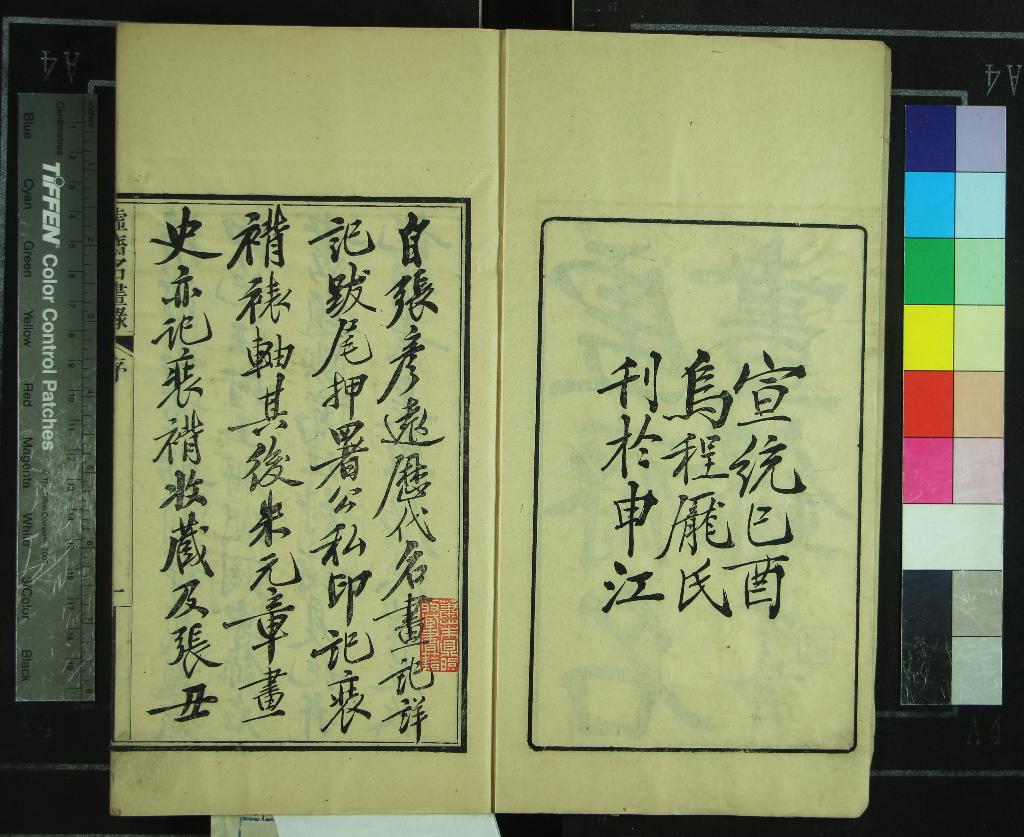 宣統己酉
烏程龐氏
刊於申江
自張彥遠歷代名畫記詳
記跋尾押署公私印記裝
褙裱軸其後米元章畫
史亦記裝褙收藏及張丑
虛齋名畫錄
序
一
TIFFEN Color Control Patches
Blue Cyan Green Yellow Red Magenta White 3/Color Black
Centimetres
A4
A4
A4